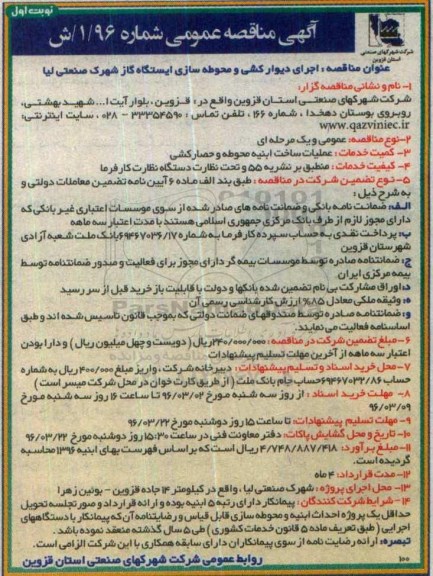 نوبت اول
آگهی مناقصه عمومی شماره ۱/۹۶/ش
شرکت شهرکهای صنعتی
استان قزوین
عنوان مناقصه : اجرای دیوار کشی و محوطه سازی ایستگاه گاز شهرک صنعتی لیا
۱- نام و نشانی مناقصه گزار:
شرکت شهرکهای صنعتی استان قزوین واقع در: قزوین، بلوار آیت ا... شهید بهشتی،
روبروی بوستان دهخدا، شماره ۱۶۶ ، تلفن تماس : ۳۳۳۵۴۵۹۰ - ۰۲۸ ، سایت اینترنتی:
www.qazviniec.ir
۲-نوع مناقصه: عمومی و یک مرحله ای
۳- کمیت خدمات : عملیات ساخت ابنیه محوطه و حصارکشی
۴- کیفیت خدمات : منطبق بر نشریه ۵۵ و تحت نظارت دستگاه نظارت کارفرما
۵- نوع تضمین شرکت در مناقصه : طبق بند الف ماده ۶ آیین نامه تضمین معاملات دولتی و
به شرح ذیل :
الف: ضمانت نامه بانکی و ضمانت نامه های صادر شده از سوی موسسات اعتباری غیر بانکی که
دارای مجوز لازم از طرف بانک مرکزی جمهوری اسلامی هستند با مدت اعتبار سه ماهه
ب: پرداخت نقدی به حساب سپرده کارفرما به شماره ۶۹۴۶۷۰۳۶/۱۷ بانک ملت شعبه آزادی
شهرستان قزوین
ج: ضمانتنامه صادره توسط موسسات بیمه گر دارای مجوز برای فعالیت و صدور ضمانتنامه توسط
بیمه مرکزی ایران
د: اوراق مشارکت بی نام تضمین شده بانکها و دولت با قابلیت باز خرید قبل از سر رسید
ه: وثیقه ملکی معادل ۸۵% ارزش کارشناسی رسمی آن
و: ضمانتنامه صادره توسط صندوقهای ضمانت دولتی که بموجب قانون تاسیس شده اند و طبق
اساسنامه فعالیت می نمایند.
۶-مبلغ تضمین شرکت در مناقصه : ۲۴۰/۰۰۰/۰۰۰ ریال ( دویست و چهل میلیون ریال ) و دارا بودن
اعتبار سه ماهه از آخرین مهلت تسلیم پیشنهادات
۷- محل خرید اسناد و تسلیم پیشنهادات : دبیرخانه شرکت ، واریز مبلغ ۴۰۰/۰۰۰ ریال به شماره
حساب ۶۹۴۶۷۰۳۲/۸۶ حساب جام بانک ملت ( از طریق کارت خوان در محل شرکت میسر است )
۸- مهلت خرید اسناد : از روز سه شنبه مورخ ۹۶/۰۳/۰۲ تا ساعت ۱۶ روز سه شنبه مورخ
۹۶/۰۳/۰۹
۹- مهلت تسلیم پیشنهادات: تا ساعت ۱۵ روز دوشنبه مورخ ۹۶/۰۳/۲۲
۱۰- تاریخ و محل گشایش پاکات: دفتر معاونت فنی در ساعت ۱۵:۳۰ روز دوشنبه مورخ ۹۶/۰۳/۲۲
۱۱- مبلغ برآورد: ۴/۷۴۸/۸۸۷/۴۱۸ ریال است که بر اساس فهرست بهای ابنیه ۱۳۹۶ محاسبه
گردیده است.
۱۲- مدت قرارداد: ۴ ماه
۱۳- محل اجرای پروژه : شهرک صنعتی لیا ، واقع در کیلومتر ۱۴ جاده قزوین - بوئین زهرا
۱۴- شرایط شرکت کنندگان : پیمانکار دارای رتبه ۵ ابنیه بوده و ارائه قرارداد و صورتجلسه تحویل
حداقل یک پروژه احداث ابنیه و محوطه سازی قابل قیاس و رضایتنامه آن که پیمانکار با دستگاههای
اجرایی ( طبق تعریف ماده ۵ قانون خدمات کشوری ) طی ۵ سال گذشته منعقد نموده باشد.
تبصره: ارائه رضایت نامه از سوی پیمانکاران دارای سابقه همکاری با این شرکت الزامی است.
روابط عمومی شرکت شهرکهای صنعتی استان قزوین
۱۰۰